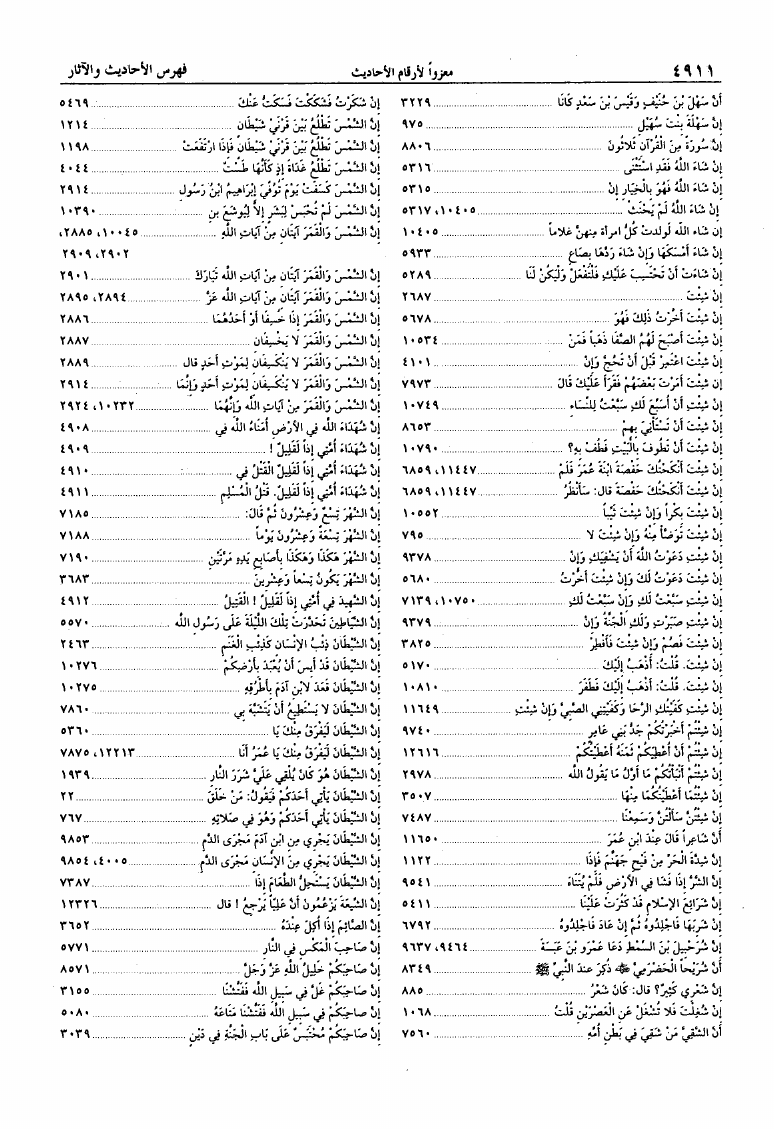 ٤٩١١
معزواً لأرقام الأحاديث
فهرس الأحاديث والآثار
أَنَّ سَهْلَ بْنَ حُنَيْفٍ وَقَيْسَ بْنَ سَعْدٍ كَانَا ... ٣٢٢٩
إِنَّ سَهْلَةَ بِنْتَ سُهَيْلٍ ... ٩٧٥
إِنَّ سُورَةً مِنَ القُرْآنِ ثَلاثُونَ ... ٨٨٠٦
إِنْ شَاءَ اللَّهُ فَقَدِ اسْتَثْنَى ... ٥٣١٦
إِنْ شَاءَ اللَّهُ فَهُوَ بِالْخِيَارِ إِنْ ... ٥٣١٥
إِنْ شَاءَ اللَّهُ لَمْ يَحْنَثْ ... ١٠٤٠٥، ٥٣١٧
إن شاء الله لولدت كُلُّ امرأة مِنهنَّ غلاماً ... ١٠٤٠٥
إِنْ شَاءَ أَمْسَكَهَا وَإِنْ شَاءَ رَدَّهَا بِصَاعٍ ... ٥٩٣٣
إِنْ شَاءَتْ أَنْ تَحْتَسِبَ عَلَيْكِ فَلْتَفْعَلْ وَلْيَكُنْ لَنَا ... ٥٢٨٩
إِنْ شِئْتَ ... ٢٦٨٧
إِنْ شِئْتَ أَخَّرْتُ ذَلِكَ فَهُوَ ... ٥٦٧٨
إِنْ شِئْتَ أَصْبَحَ لَهُمُ الصَّفَا ذَهَباً فَمَنْ ... ١٠٥٣٤
إِنْ شِئْتَ اعْتَمِرْ قَبْلَ أَنْ تَحُجَّ وَإِنْ ... ٤١٠١
إِنْ شِئْتَ أَمَرْتَ بَعْضَهُمْ فَقَرَأَ عَلَيْكَ قَالَ ... ٧٩٧٣
إِنْ شِئْتِ أَنْ أُسَبِّعَ لَكِ سَبَّعْتُ لِلنِّسَاءِ ... ١٠٧٤٩
إِنْ شِئْتَ أَنْ تَسْتَأْنِيَ بِهِمْ ... ٨٦٥٣
إِنْ شِئْتَ أَنْ تَطُوفَ بِالْبَيْتِ فَطُفْ بِهِ؟ ... ١٠٧٩٠
إِنْ شِئْتَ أَنْكَحْتُكَ حَفْصَةَ ابْنَةَ عُمَرَ فَلَمْ ... ١١٤٤٧، ٦٨٥٩
إِنْ شِئْتَ أَنْكَحْتُكَ حَفْصَةَ قال: سَأَنْظُرُ ... ١١٤٤٧، ٦٨٥٩
إِنْ شِئْتَ بِكْراً وَإِنْ شِئْتَ ثَيِّباً ... ١٠٥٥٢
إِنْ شِئْتَ تَوَضَّأْ مِنْهُ وَإِنْ شِئْتَ لا ... ٧٩٥
إِنْ شِئْتِ دَعَوْتُ اللَّهَ أَنْ يَشْفِيَكِ وَإِنْ ... ٩٣٧٨
إِنْ شِئْتَ دَعَوْتُ لَكَ وَإِنْ شِئْتَ أَخَّرْتُ ... ٥٦٨٠
إِنْ شِئْتِ سَبَّعْتُ لَكِ وَإِنْ سَبَّعْتُ لَكِ ... ١٠٧٥٠، ٧١٣٩
إِنْ شِئْتِ صَبَرْتِ وَلَكِ الْجَنَّةُ وَإِنْ ... ٩٣٧٩
إِنْ شِئْتَ فَصُمْ وَإِنْ شِئْتَ فَأَفْطِرْ ... ٣٨٢٥
إِنْ شِئْتَ. قُلْتُ: أَذْهَبُ إِلَيْكَ ... ٥١٧٠
إِنْ شِئْتَ. قُلْتُ: أَذْهَبُ إِلَيْكَ فَظَفَرَ ... ١٠٨١٠
إِنْ شِئْتِ كَفَيْتُكِ الرَّحَا وَكَفَيْتِنِي الصَّبِيَّ وَإِنْ شِئْتِ ... ١١٦٤٩
إِنْ شِئْتُمْ أَخْبَرْتُكُمْ جَدُّ بَنِي عَامِرٍ ... ٩٧٤٠
إِنْ شِئْتُمْ أَنْ أُعْطِيَكُمْ ثَمَنَهُ أَعْطَيْتُكُمْ ... ١٢٦١٦
إِنْ شِئْتُمْ أَنْبَأْتُكُمْ مَا أَوَّلُ مَا يَقُولُ اللَّهُ ... ٢٩٧٨
إِنْ شِئْتُمَا أَعْطَيْتُكُمَا مِنْهَا ... ٣٥٠٧
إِنْ شِئْتُنَّ سَأَلْتُنَّ وَسَمِعْنَا ... ٧٤٨٧
أَنَّ شَاعِراً قَالَ عِنْدَ ابنِ عُمَرَ ... ١١٦٥٠
إِنَّ شِدَّةَ الْحَرِّ مِنْ فَيْحِ جَهَنَّمَ فَإِذَا ... ١١٢٢
إِنَّ الشَّرَّ إِذَا فَشَا فِي الأَرْضِ فَلَمْ يُتَنَاهَ ... ٩٥٤١
إِنَّ شَرَائِعَ الإِسْلامِ قَدْ كَثُرَتْ عَلَيْنَا ... ٥٤١١
إِنْ شَرِبَهَا فَاجْلِدُوهُ ثُمَّ إِنْ عَادَ فَاجْلِدُوهُ ... ٦٧٩٢
إِنَّ شُرَحْبِيلَ بْنَ السِّمْطِ دَعَا عَمْرَو بْنَ عَبَسَةَ ... ٩٤٦٤، ٩٦٣٧
أَنَّ شُرَيْحاً الْحَضْرَمِيَّ ﷺ ذُكِرَ عندَ النَّبِيِّ ﷺ ... ٨٣٤٩
إِنَّ شَعْرِي كَثِيرٌ؟ قال: كَانَ شَعْرُ ... ٨٨٥
إِنْ شُغِلْتَ فَلا تَشْغَلْ عَنِ الْعَصْرَيْنِ قُلْتُ ... ١٠٦٨
أَنَّ الشَّقِيَّ مَنْ شَقِيَ فِي بَطْنِ أُمِّهِ ... ٧٥٦٠
إِنْ شَكَرْتُ فَشَكَكْتَ فَسَكَتُّ عَنْكَ ... ٥٤٦٩
إِنَّ الشَّمْسَ تَطْلُعُ بَيْنَ قَرْنَيْ شَيْطَانٍ ... ١٢١٤
إِنَّ الشَّمْسَ تَطْلُعُ بَيْنَ قَرْنَيْ شَيْطَانٍ فَإِذَا ارْتَفَعَتْ ... ١١٩٨
إِنَّ الشَّمْسَ تَطْلُعُ غَدَاةَ إِذٍ كَأَنَّهَا طَسْتٌ ... ٤٠٤٤
إِنَّ الشَّمْسَ كَسَفَتْ يَوْمَ تُوُفِّيَ إِبْرَاهِيمُ ابْنُ رَسُولِ ... ٢٩١٤
إِنَّ الشَّمْسَ لَمْ تُحْبَسْ لِبَشَرٍ إِلاَّ لِيُوشَعَ بنِ ... ١٠٣٩٠
إِنَّ الشَّمْسَ وَالْقَمَرَ آيَتَانِ مِنْ آيَاتِ اللَّهِ ... ١٠٠٤٥، ٢٨٨٥،
٢٩٠٢، ٢٩٠٩
إِنَّ الشَّمْسَ وَالْقَمَرَ آيَتَانِ مِنْ آيَاتِ اللَّهِ تَبَارَكَ ... ٢٩٠١
إِنَّ الشَّمْسَ وَالْقَمَرَ آيَتَانِ مِنْ آيَاتِ اللَّهِ عَزَّ ... ٢٨٩٤، ٢٨٩٥
إِنَّ الشَّمْسَ وَالْقَمَرَ إِذَا خَسِفَا أَوْ أَحَدُهُمَا ... ٢٨٨٦
إِنَّ الشَّمْسَ وَالْقَمَرَ لا يَخْسِفَانِ ... ٢٨٨٧
إِنَّ الشَّمْسَ وَالْقَمَرَ لا يَنْكَسِفَانِ لِمَوْتِ أَحَدٍ قال ... ٢٨٨٩
إِنَّ الشَّمْسَ وَالْقَمَرَ لا يَنْكَسِفَانِ لِمَوْتِ أَحَدٍ وَإِنَّمَا ... ٢٩١٤
إِنَّ الشَّمْسَ وَالْقَمَرَ مِنْ آيَاتِ اللَّهِ وَإِنَّهُمَا ... ١٠٢٣٢، ٢٩٢٤
إِنَّ شُهَدَاءَ اللَّهِ فِي الأَرْضِ أُمَنَاءُ اللَّهِ فِي ... ٤٩٠٨
إِنَّ شُهَدَاءَ أُمَّتِي إِذاً لَقَلِيلٌ! ... ٤٩٠٩
إِنَّ شُهَدَاءَ أُمَّتِي إِذاً لَقَلِيلٌ الْقَتْلُ فِي ... ٤٩١٠
إِنَّ شُهَدَاءَ أُمَّتِي إِذاً لَقَلِيلٌ. قَتْلُ الْمُسْلِمِ ... ٤٩١١
إِنَّ الشَّهْرَ تِسْعٌ وَعِشْرُونَ ثُمَّ قَالَ: ... ٧١٨٥
إِنَّ الشَّهْرَ تِسْعَةٌ وَعِشْرُونَ يَوْماً ... ٧١٨٨
إِنَّ الشَّهْرَ هَكَذَا وَهَكَذَا بِأَصَابِعِ يَدِهِ مَرَّتَيْنِ ... ٧١٩٠
إِنَّ الشَّهْرَ يَكُونُ تِسْعاً وَعِشْرِينَ ... ٣٦٨٣
إِنَّ الشَّهِيدَ فِي أُمَّتِي إِذاً لَقَلِيلٌ! الْقَتِيلُ ... ٤٩١٢
إِنَّ الشَّيَاطِينَ تَحَدَّرَتْ تِلْكَ اللَّيْلَةَ عَلَى رَسُولِ اللَّهِ ... ٥٥٧٠
إِنَّ الشَّيْطَانَ ذِئْبُ الإِنْسَانِ كَذِئْبِ الْغَنَمِ ... ٢٤٦٣
إِنَّ الشَّيْطَانَ قَدْ أَيِسَ أَنْ يُعْبَدَ بِأَرْضِكُمْ ... ١٠٢٧٦
إِنَّ الشَّيْطَانَ قَعَدَ لابْنِ آدَمَ بِأَطْرُقِهِ ... ١٠٢٧٥
إِنَّ الشَّيْطَانَ لا يَسْتَطِيعُ أَنْ يَتَشَبَّهَ بِي ... ٧٨٦٠
إِنَّ الشَّيْطَانَ لَيَفْرَقُ مِنْكَ يَا ... ٥٣٦٠
إِنَّ الشَّيْطَانَ لَيَفْرَقُ مِنْكَ يَا عُمَرُ أَنَا ... ١٢٢١٣، ٧٨٧٥
إِنَّ الشَّيْطَانَ هُوَ كَانَ يُلْقِي عَلَيَّ شَرَرَ النَّارِ ... ١٩٣٩
إِنَّ الشَّيْطَانَ يَأْتِي أَحَدَكُمْ فَيَقُولُ: مَنْ خَلَقَ ... ٢٢
إِنَّ الشَّيْطَانَ يَأْتِي أَحَدَكُمْ وَهُوَ فِي صَلاتِهِ ... ٧٦٧
إِنَّ الشَّيْطَانَ يَجْرِي مِنِ ابنِ آدَمَ مَجْرَى الدَّمِ ... ٩٨٥٣
إِنَّ الشَّيْطَانَ يَجْرِي مِنَ الإِنْسَانِ مَجْرَى الدَّمِ ... ٤٠٠٥، ٩٨٥٤
إِنَّ الشَّيْطَانَ يَسْتَحِلُّ الطَّعَامَ إِذَا ... ٧٣٨٧
إِنَّ الشِّيعَةَ يَزْعُمُونَ أَنَّ عَلِيّاً يَرْجِعُ! قال ... ١٢٣٢٦
إِنَّ الصَّائِمَ إِذَا أُكِلَ عِنْدَهُ ... ٣٦٥٢
إِنَّ صَاحِبَ الْمَكْسِ فِي النَّارِ ... ٥٧٧١
إِنَّ صَاحِبَكُمْ خَلِيلُ اللَّهِ عَزَّ وَجَلَّ ... ٨٥٧١
إِنَّ صَاحِبَكُمْ غَلَّ فِي سَبِيلِ اللَّهِ فَفَتَّشْنَا ... ٣١٥٥
إِنَّ صَاحِبَكُمْ فِي سَبِيلِ اللَّهِ فَفَتَّشْنَا مَتَاعَهُ ... ٥٠٨٠
إِنَّ صَاحِبَكُمْ مُحْتَبَسٌ عَلَى بَابِ الْجَنَّةِ فِي دَيْنٍ ... ٣٠٣٩